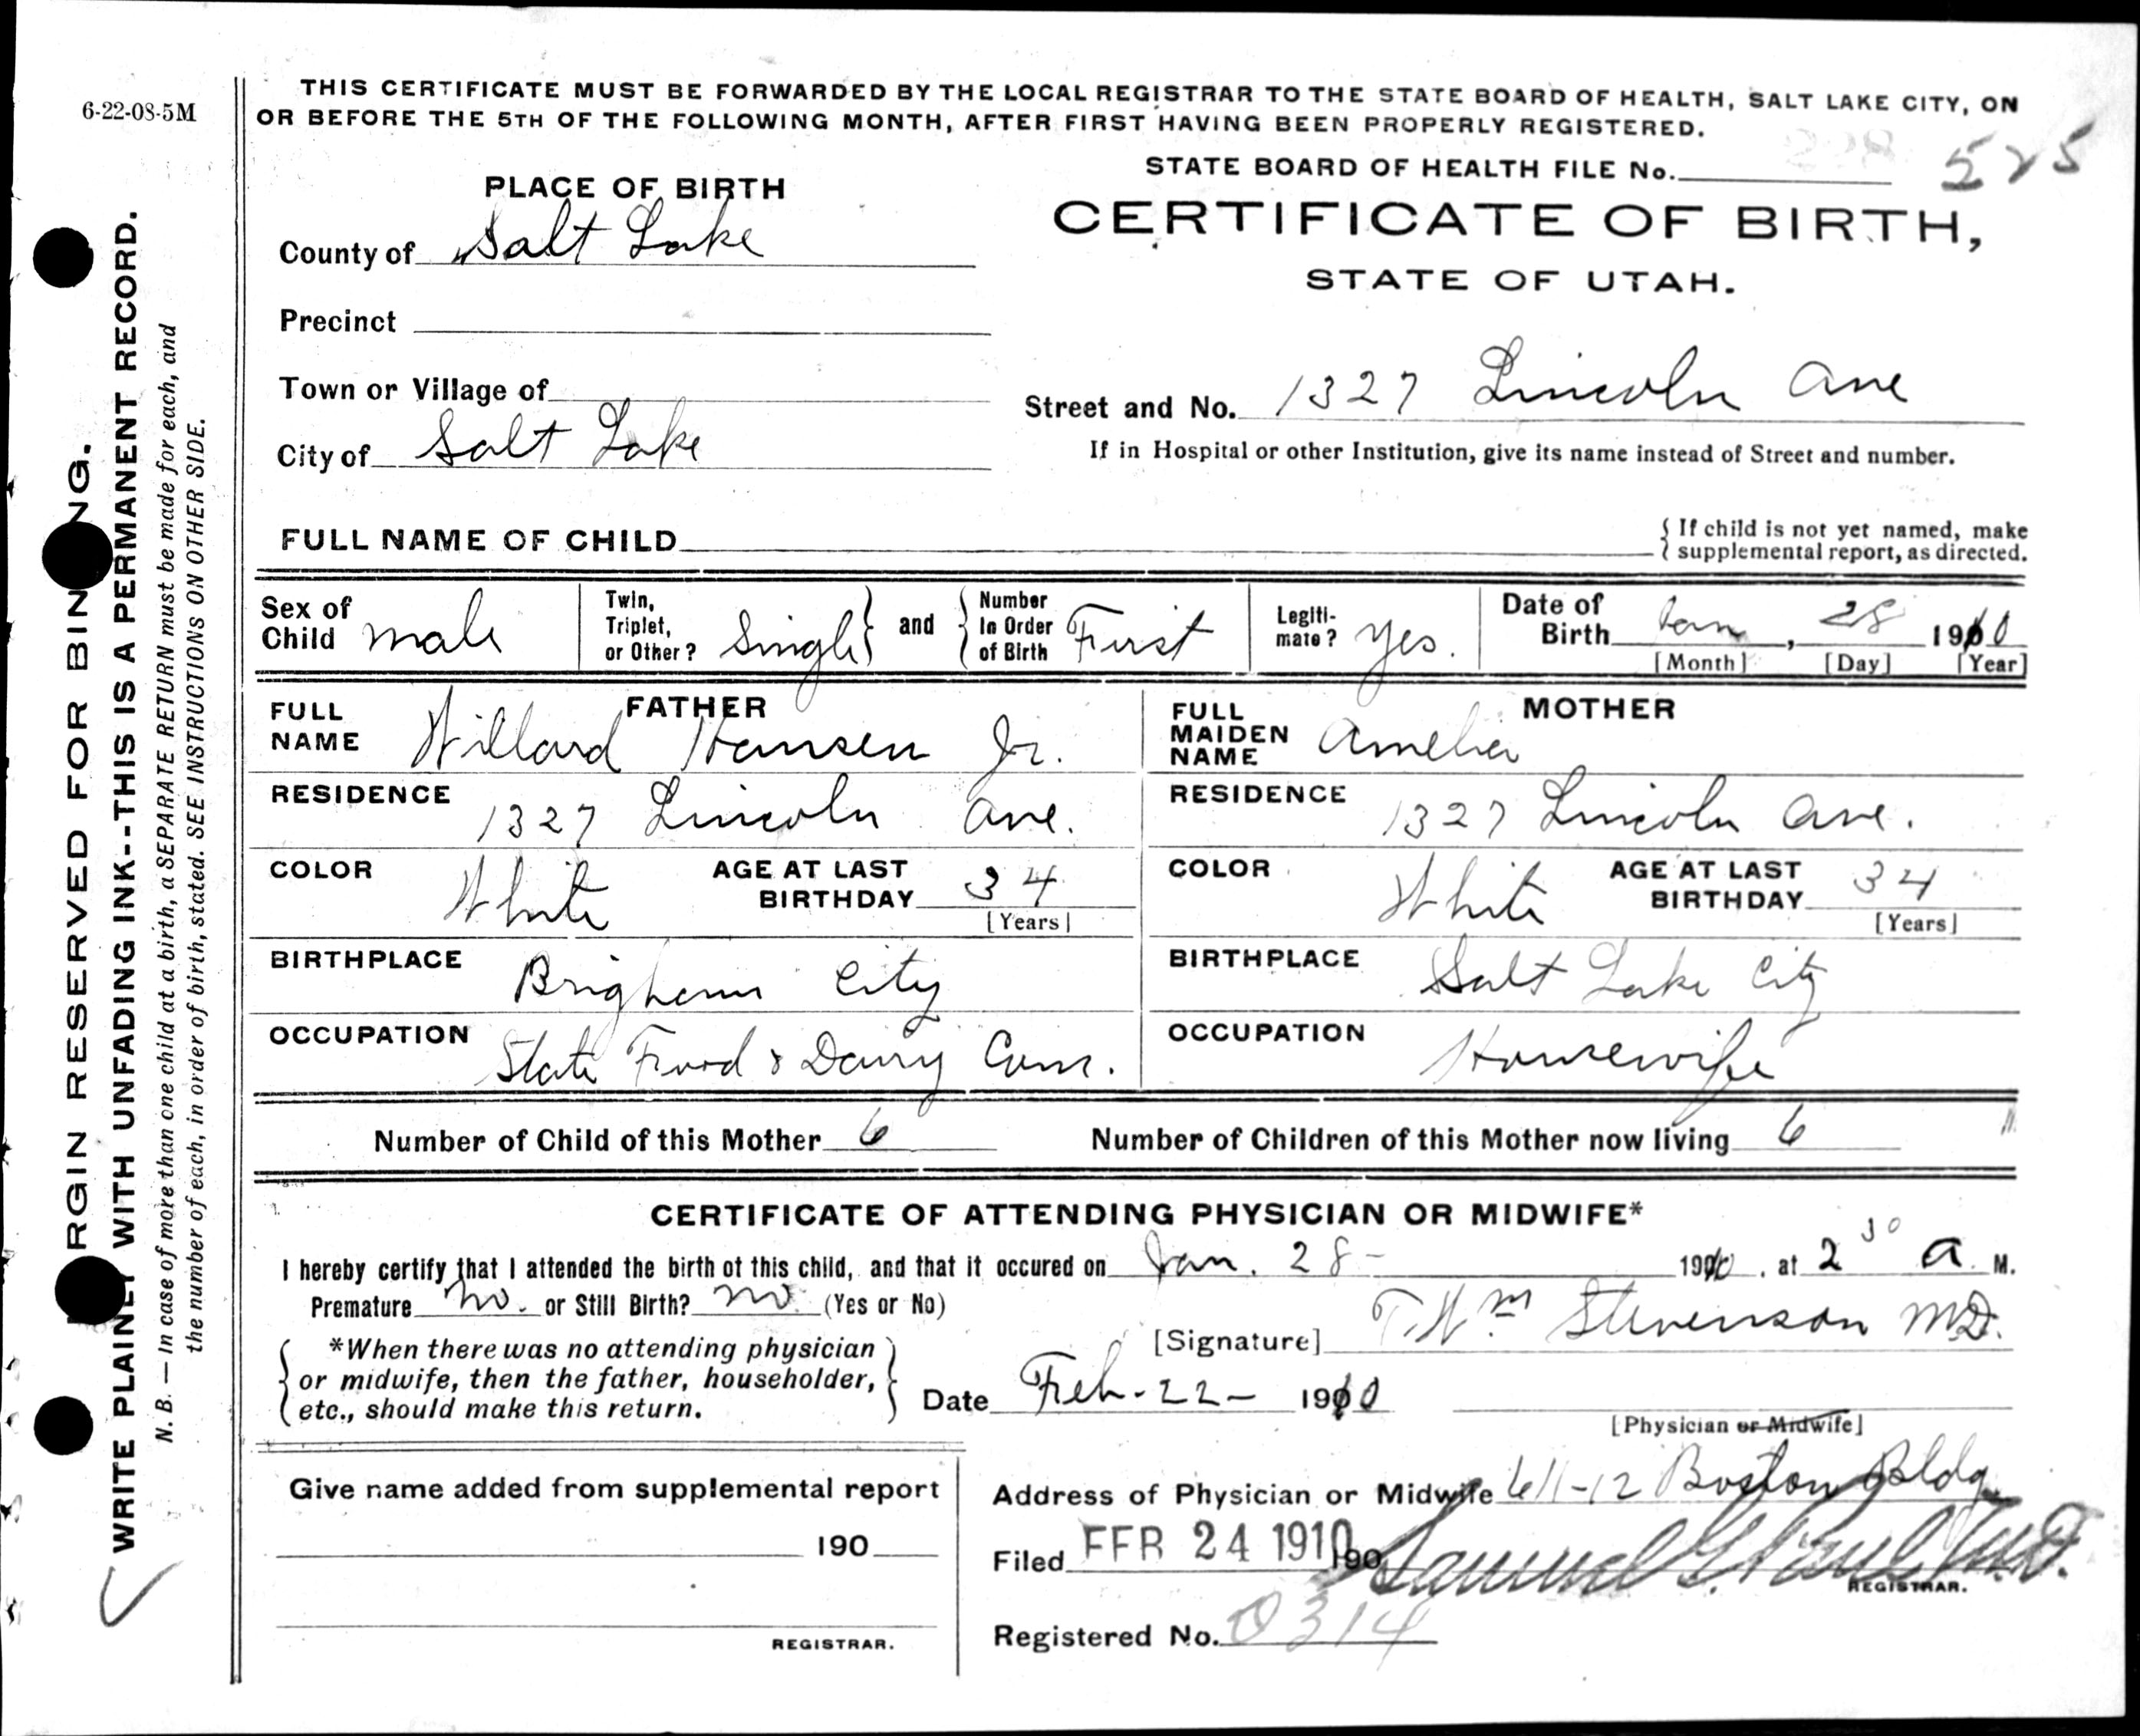 6-22-08-5M
THIS CERTIFICATE MUST BE FORWARDED BY THE LOCAL REGISTRAR TO THE STATE BOARD OF HEALTH, SALT LAKE CITY, ON
OR BEFORE THE 5TH OF THE FOLLOWING MONTH, AFTER FIRST HAVING BEEN PROPERLY REGISTERED.
STATE BOARD OF HEALTH FILE No. 525
PLACE OF BIRTH
CERTIFICATE OF BIRTH,
STATE OF UTAH.
County of Salt Lake
Precinct
Town or Village of
Street and No. 1327 Lincoln Ave
City of Salt Lake
If in Hospital or other Institution, give its name instead of Street and number.
FULL NAME OF CHILD
{ If child is not yet named, make
supplemental report, as directed.
Sex of Child male
Twin, Triplet, or Other? Single } and { Number In Order of Birth First
Legitimate? Yes.
Date of Birth Jan, 28 1910
[Month] [Day] [Year]
FATHER
FULL NAME Willard Hansen Jr.
RESIDENCE 1327 Lincoln Ave.
COLOR White AGE AT LAST BIRTHDAY 34
[Years]
BIRTHPLACE Brigham City
OCCUPATION State Food & Dairy Com.
MOTHER
FULL MAIDEN NAME Amelia
RESIDENCE 1327 Lincoln Ave.
COLOR White AGE AT LAST BIRTHDAY 34
[Years]
BIRTHPLACE Salt Lake City
OCCUPATION Housewife
Number of Child of this Mother 6 Number of Children of this Mother now living 6
CERTIFICATE OF ATTENDING PHYSICIAN OR MIDWIFE*
I hereby certify that I attended the birth of this child, and that it occured on Jan. 28- 1910, at 2 30 a M.
Premature no. or Still Birth? no. (Yes or No)
[Signature] T. Wm Stevenson MD.
{ *When there was no attending physician
or midwife, then the father, householder,
etc., should make this return. }
Date Feb-22- 1910
[Physician or Midwife]
Give name added from supplemental report
190
REGISTRAR.
Address of Physician or Midwife 611-12 Boston Bldg
Filed FEB 24 1910 190 Samuel G. Paul M.D.
REGISTRAR.
Registered No. 0314
RGIN RESERVED FOR BIN NG.
WRITE PLAINLY WITH UNFADING INK--THIS IS A PERMANENT RECORD.
N. B. — In case of more than one child at a birth, a SEPARATE RETURN must be made for each, and
the number of each, in order of birth, stated. SEE INSTRUCTIONS ON OTHER SIDE.